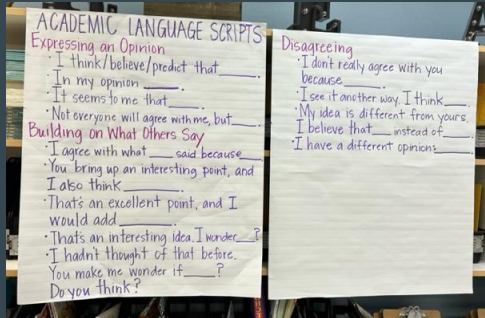 ACADEMIC LANGUAGE SCRIPTS
Expressing an Opinion
· I think/believe/predict that____.
· In my opinion ____.
· It seems to me that____.
· Not everyone will agree with me, but____.
Building on What Others Say
· I agree with what ____ said because____
· You bring up an interesting point, and
I also think________.
· That's an excellent point, and I
would add________.
· That's an interesting idea. I wonder____?
· I hadn't thought of that before.
You make me wonder if____?
Do you think?
Disagreeing
· I don't really agree with you
because______.
· I see it another way. I think____.
· My idea is different from yours.
I believe that____ instead of____.
· I have a different opinion:______.